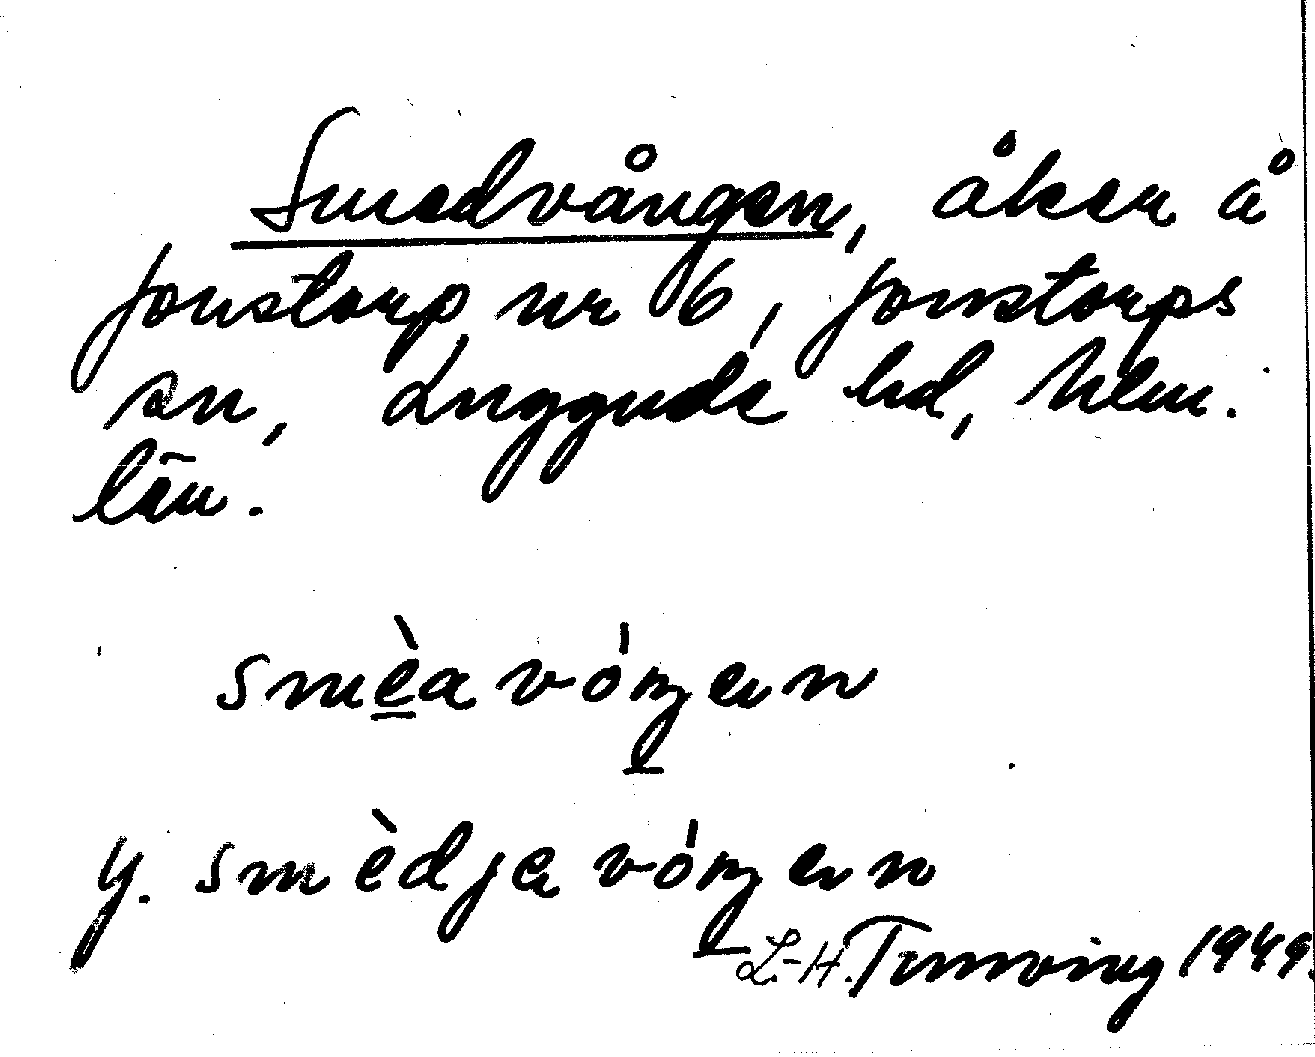 Smedvången, åker å
Jonstorp nr 6, Jonstorps
sn, Luggude hd, Hlm.
län.
smèa vóŋen
y. smèdja vóŋen
L.-H. Tunving 1949.